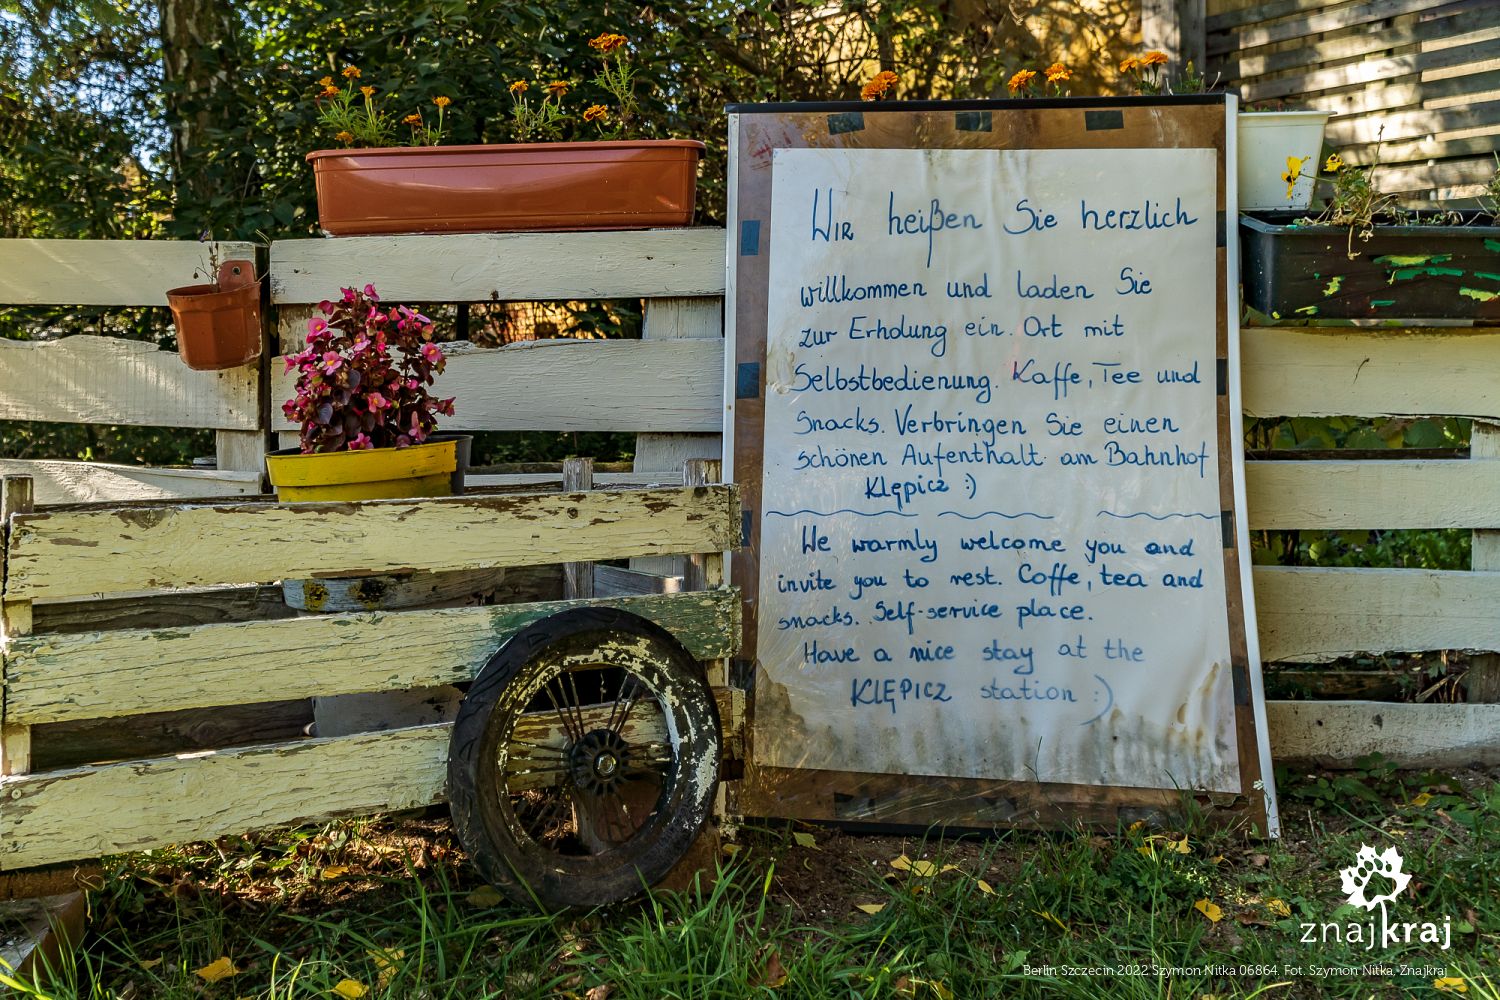 Wir heißen Sie herzlich
willkommen und laden Sie
zur Erholung ein. Ort mit
Selbstbedienung. Kaffe, Tee und
Snacks. Verbringen Sie einen
schönen Aufenthalt am Bahnhof
Klępicz :)
We warmly welcome you and
invite you to rest. Coffe, tea and
snacks. Self-service place.
Have a nice stay at the
KLĘPICZ station :)
znajkraj
Berlin Szczecin 2022 Szymon Nitka 06864. Fot. Szymon Nitka, Znajkraj